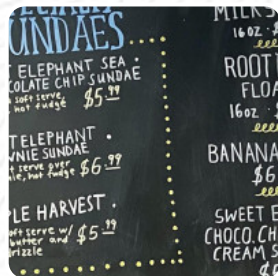 UNDAES
ELEPHANT SEA
COLATE CHIP SUNDAE
soft serve,
hot fudge $5.99
ELEPHANT
NIE SUNDAE
serve over
hot fudge $6.99
LE HARVEST
soft serve w/
butter and $5.99
drizzle
MILKS
16 oz
ROOT
FLOA
16oz
BANANA
$6
SWEET E
CHOCO.CH
CREAM